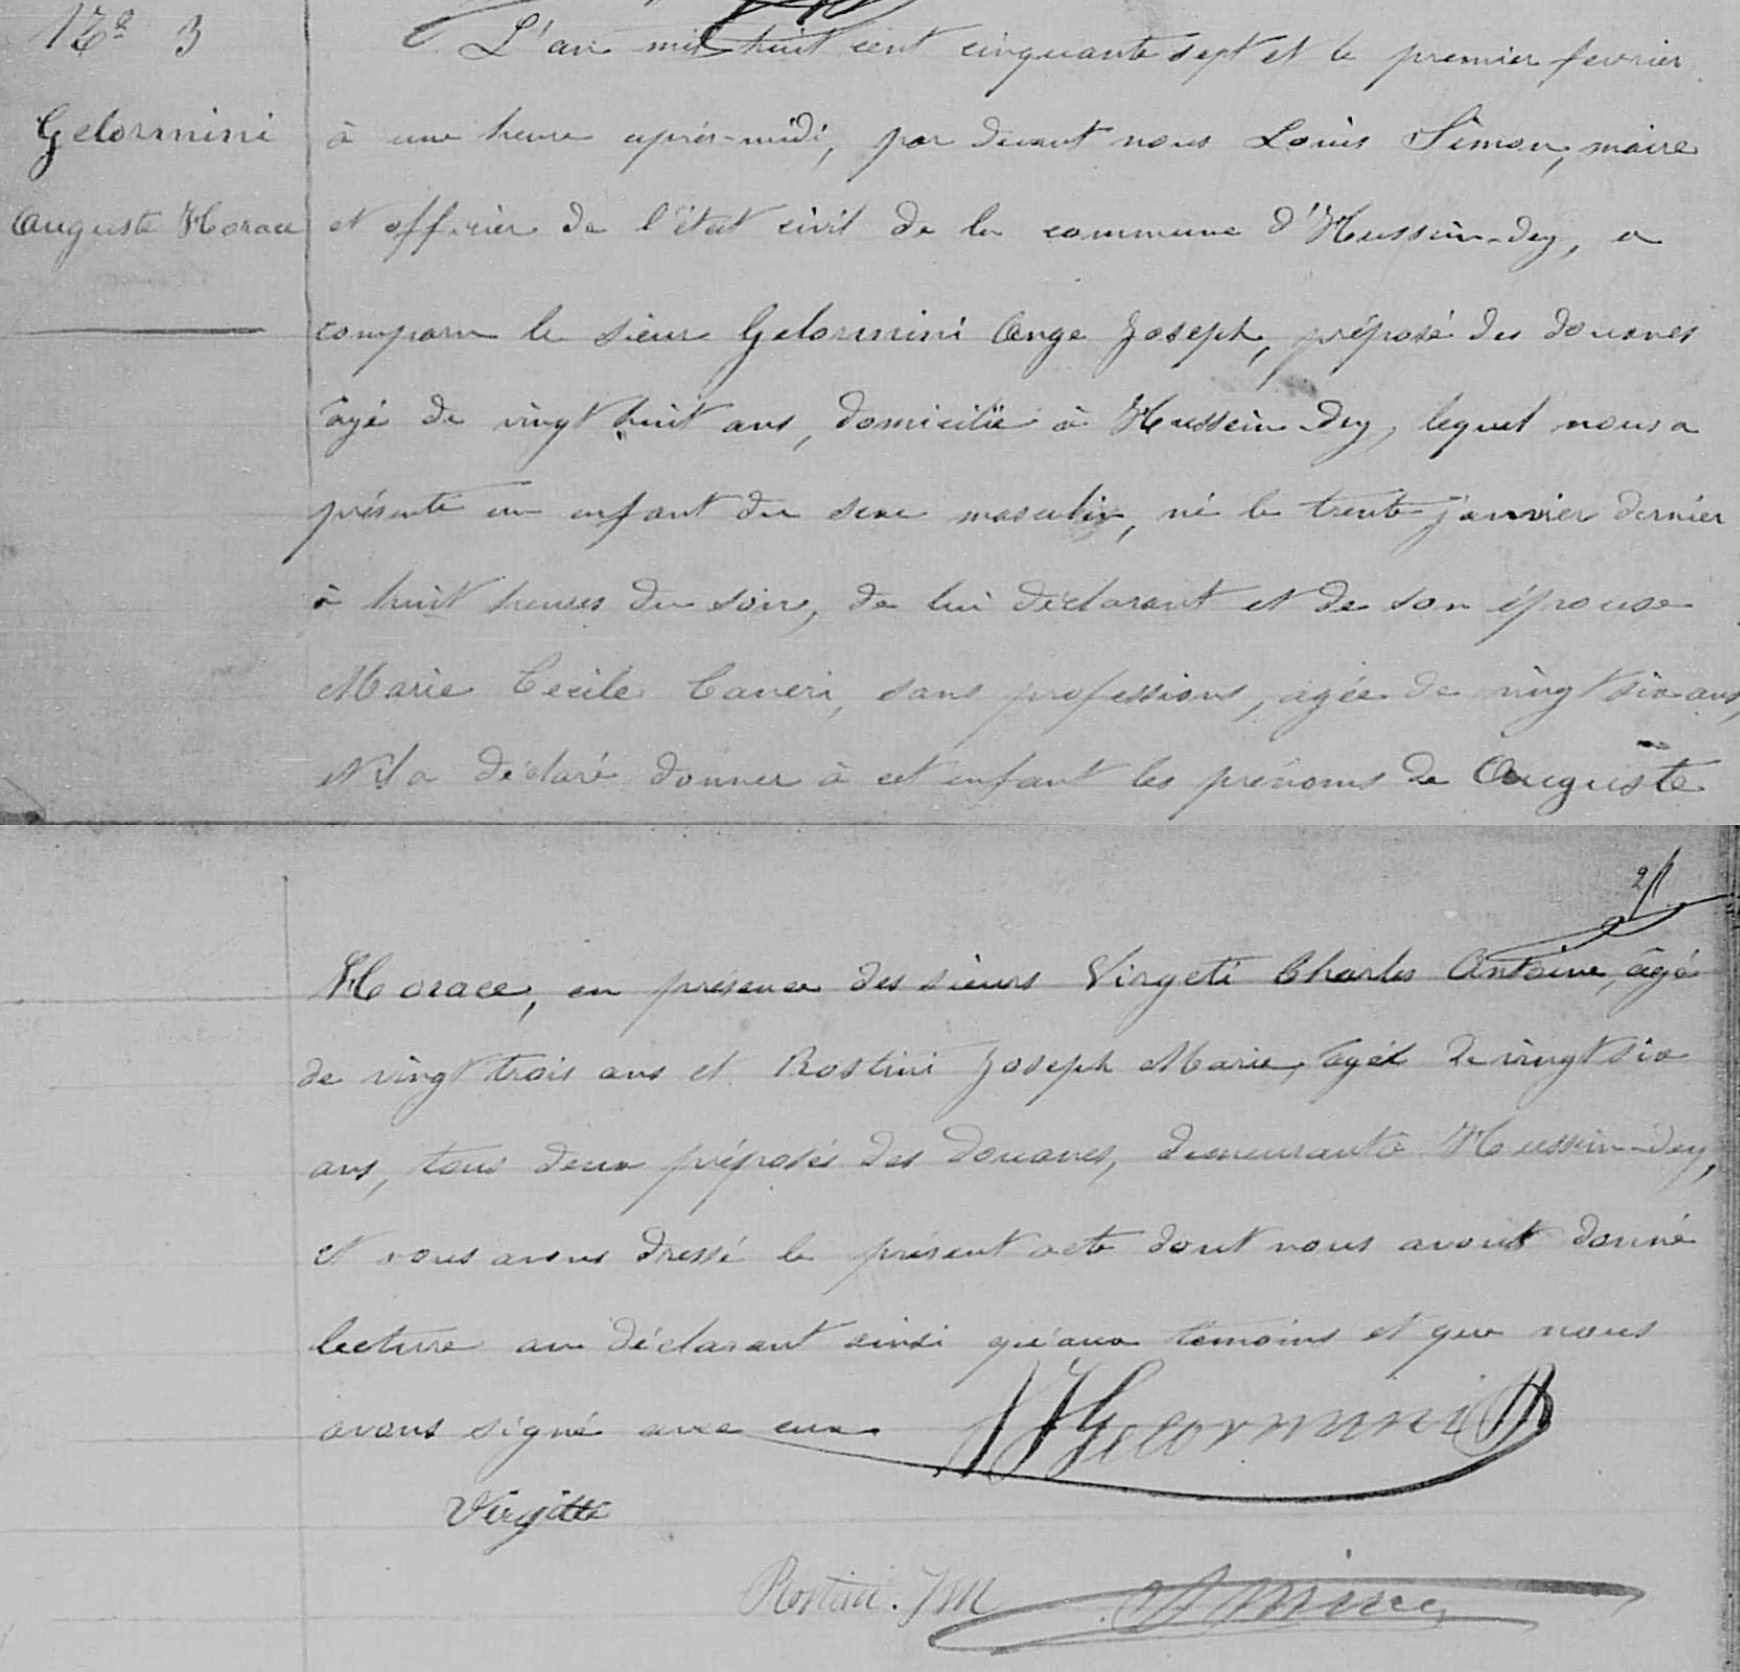 N° 3
Gelormini
Auguste Horace
L'an mil huit cent cinquante sept et le premier fevrier
à une heure après-midi, par devant nous Louis Simon, maire
et officier de l'état civil de la commune d'Hussein-dey, a
comparu le sieur Gelormini Ange Joseph, préposé des douanes
âgé de vingt huit ans, domicilié à Hussein-Dey, lequel nous a
présenté un enfant du sexe masculin, né le trente janvier dernier
à huit heures du soir, de lui déclarant et de son épouse
Marie Cecile Caneri, sans professions, agée de vingt six ans,
et il a déclaré donner à cet enfant les prénoms de Auguste
2
Horace, en présence des sieurs Virgeti Charles Antoine, âgé
de vingt trois ans et Rostini Joseph Marie, agé de vingt six
ans, tous deux préposés des douanes, demeurant à Hussein-dey,
et nous avons dressé le présent acte dont nous avons donné
lecture au déclarant ainsi qu'aux témoins et que nous
avons signé avec eux
Gelormini
Virgitti
Rostini. JM